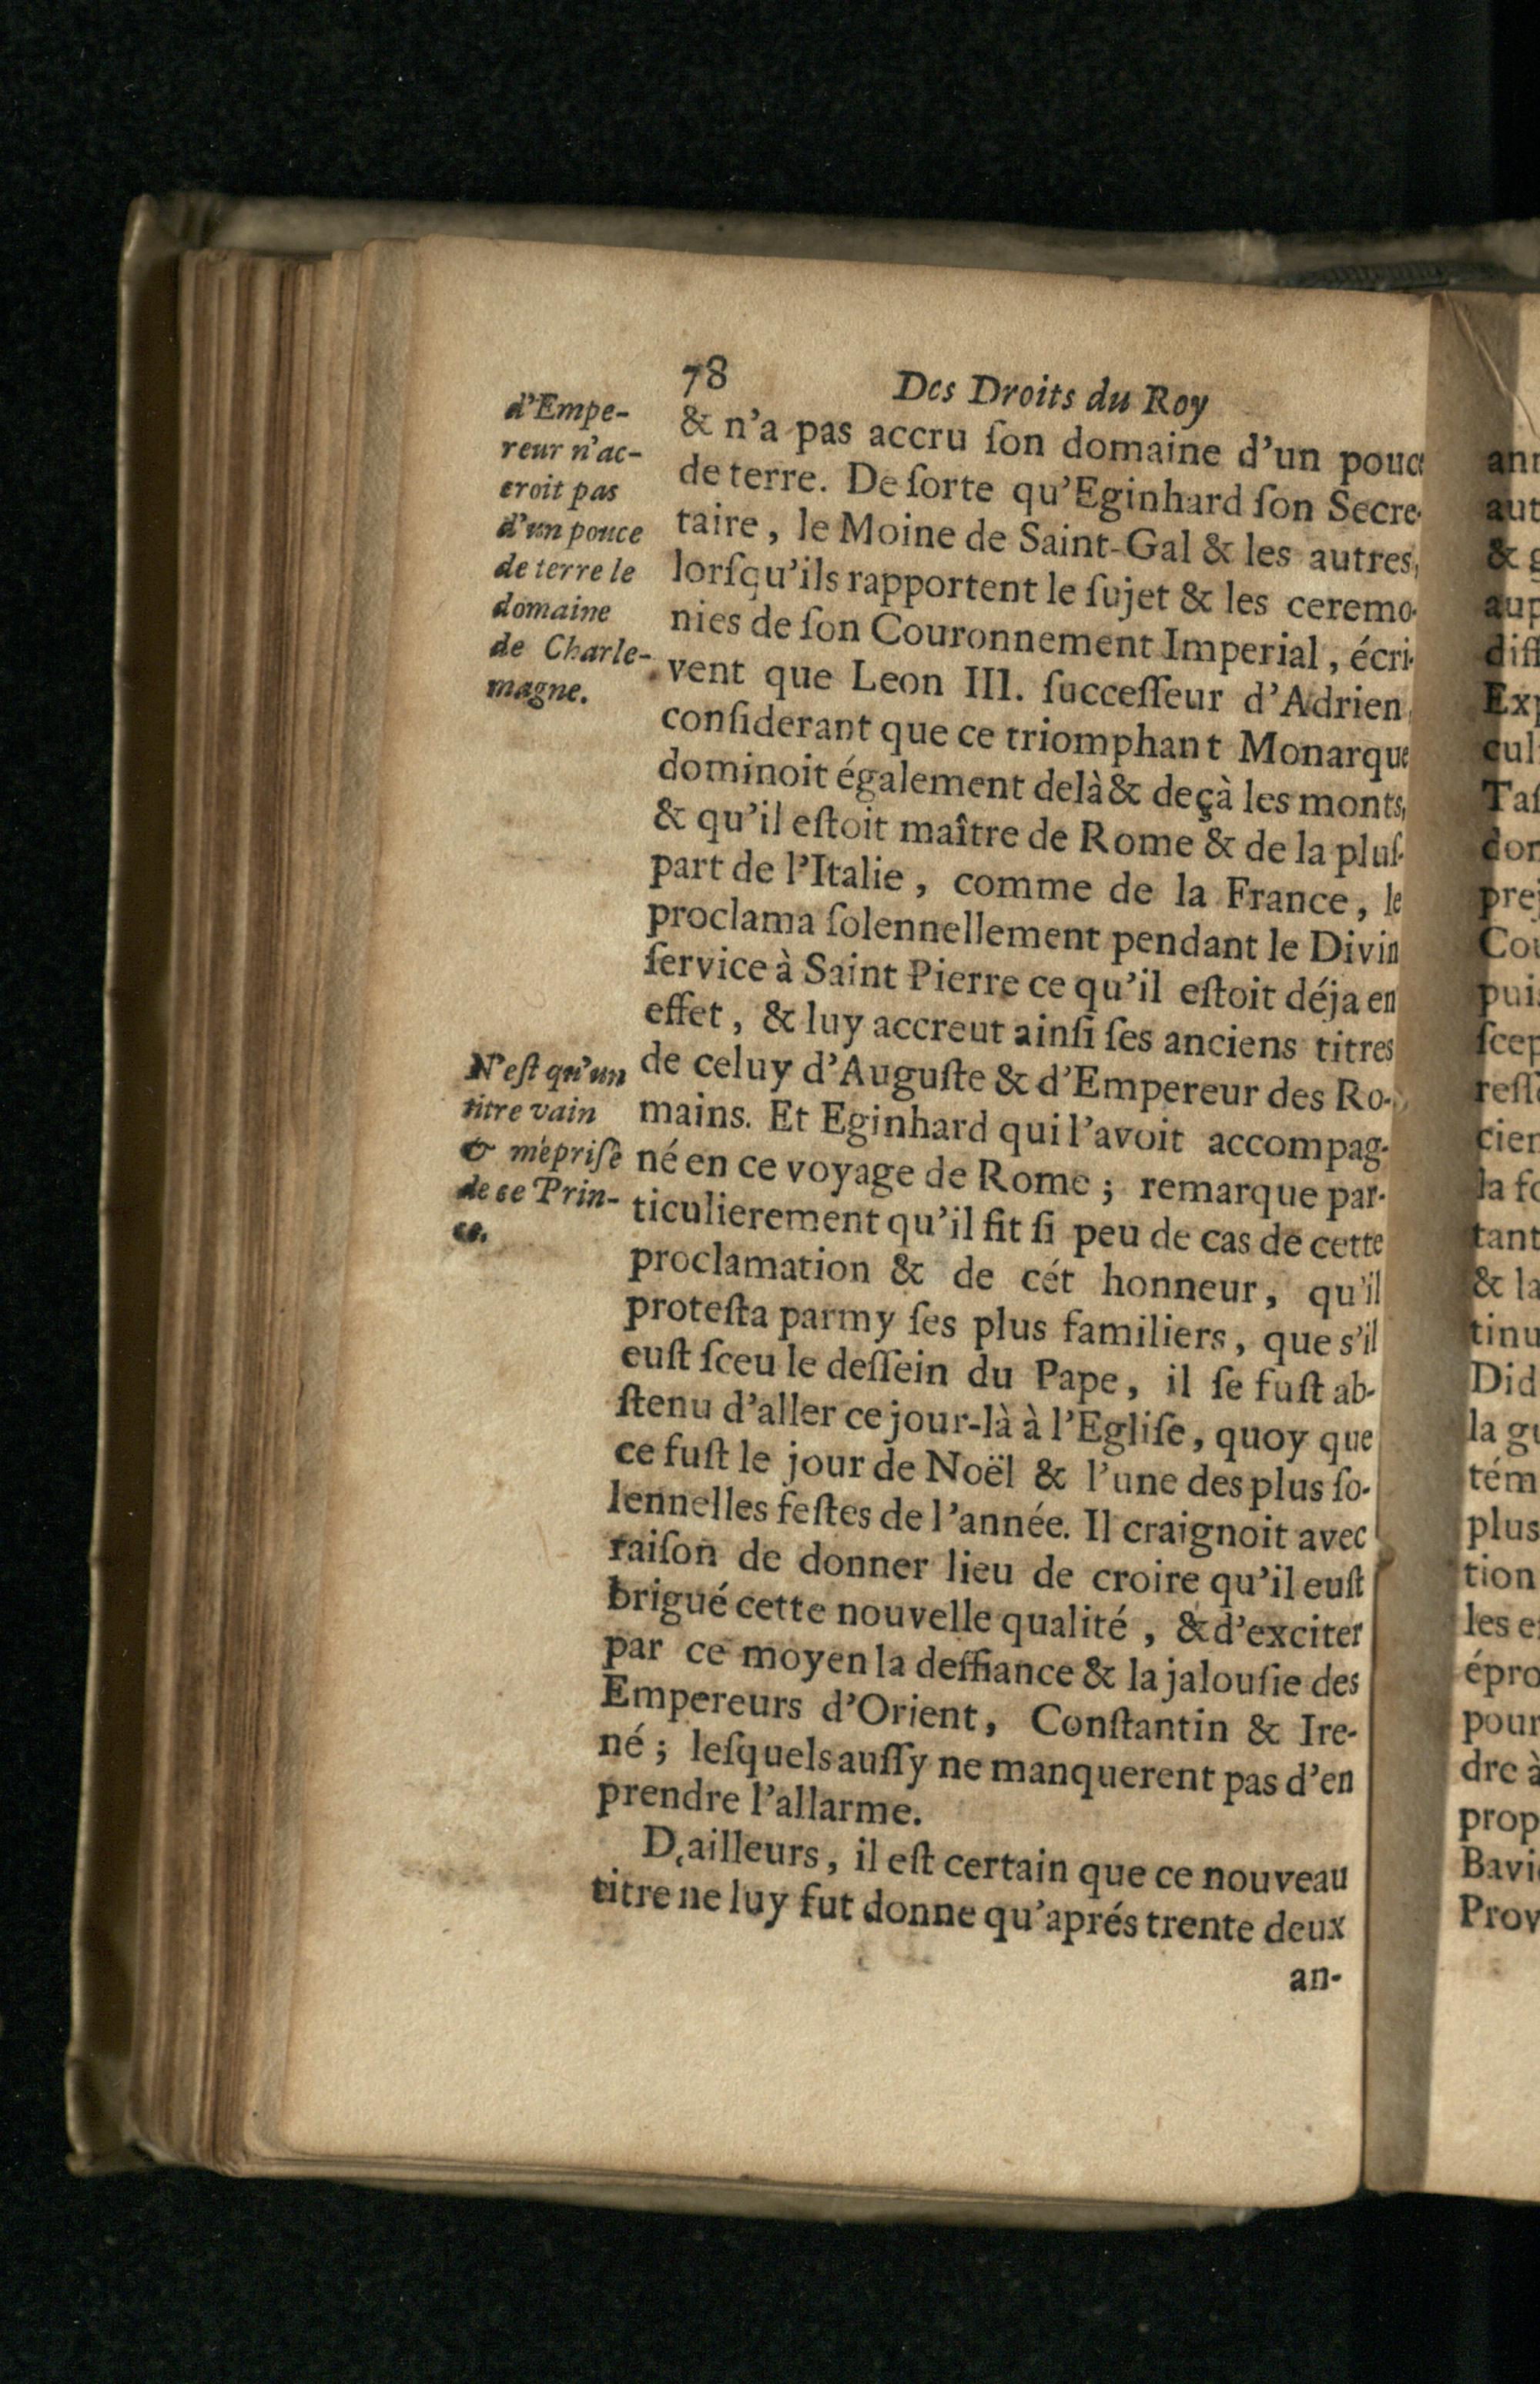 78 Des Droits du Roy
d'Empe-
reur n'ac-
croit pas
d'un pouce
de terre le
domaine
de Charle-
magne.
& n'a pas accru ſon domaine d'un pouce
de terre. De ſorte qu'Eginhard ſon Secre-
taire, le Moine de Saint-Gal & les autres,
lorſqu'ils rapportent le ſujet & les ceremo-
nies de ſon Couronnement Imperial, écri-
vent que Leon III. ſucceſſeur d'Adrien,
conſiderant que ce triomphant Monarque
dominoit également delà & deçà les monts,
& qu'il eſtoit maître de Rome & de la pluſ-
part de l'Italie, comme de la France, le
proclama ſolennellement pendant le Divin
ſervice à Saint Pierre ce qu'il eſtoit déja en
effet, & luy accreut ainſi ſes anciens titres
de celuy d'Auguſte & d'Empereur des Ro-
mains. Et Eginhard qui l'avoit accompag-
né en ce voyage de Rome; remarque par-
ticulierement qu'il fit ſi peu de cas de cette
proclamation & de cét honneur, qu'il
proteſta parmy ſes plus familiers, que s'il
euſt ſceu le deſſein du Pape, il ſe fuſt ab-
ſtenu d'aller ce jour-là à l'Egliſe, quoy que
ce fuſt le jour de Noël & l'une des plus ſo-
lennelles feſtes de l'année. Il craignoit avec
raiſon de donner lieu de croire qu'il euſt
brigué cette nouvelle qualité, & d'exciter
par ce moyen la deffiance & la jalouſie des
Empereurs d'Orient, Conſtantin & Ire-
né; leſquels auſſy ne manquerent pas d'en
prendre l'allarme.
D'ailleurs, il eſt certain que ce nouveau
titre ne luy fut donne qu'aprés trente deux
an-
N'eſt qu'un
titre vain
& mepriſé
de ce Prin-
ce.